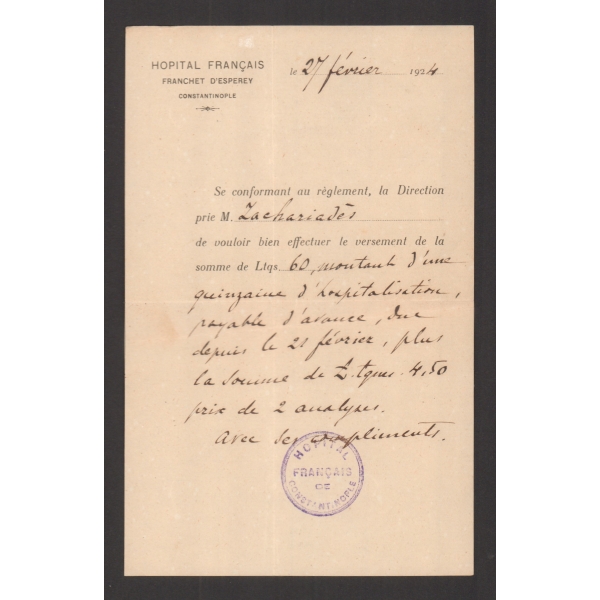 HOPITAL FRANÇAIS
FRANCHET D'ESPEREY
CONSTANTINOPLE
le 27 février 1924
Se conformant au règlement, la Direction
prie M. Zachariadès
de vouloir bien effectuer le versement de la
somme de Ltqs. 60, montant d'une
quinzaine d'hospitalisation,
payable d'avance, due
depuis le 21 février, plus
la somme de L.tques. 4,50
prix de 2 analyses.
Avec ses compliments.
HOPITAL
FRANÇAIS
DE
CONSTANTINOPLE